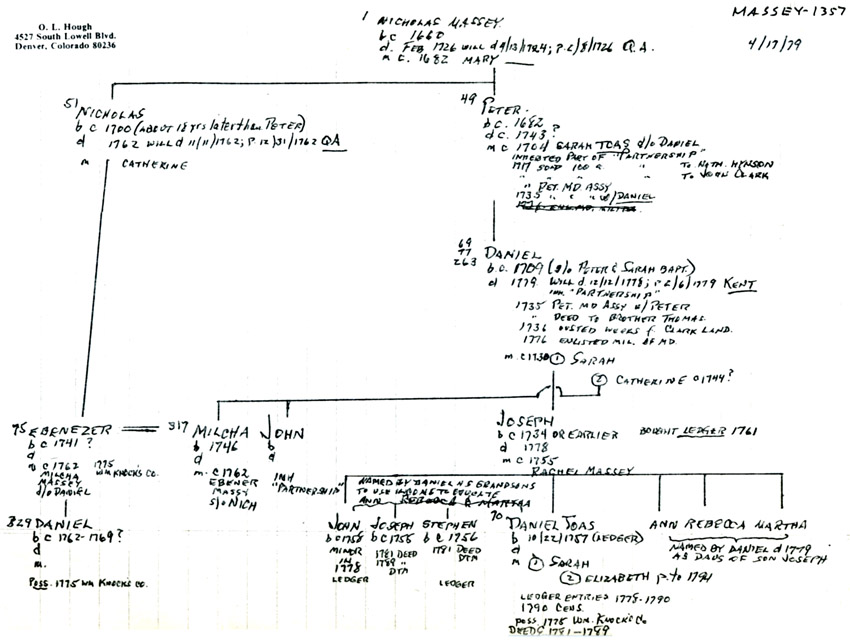 O. L. Hough
4527 South Lowell Blvd.
Denver, Colorado 80236
MASSEY-1357
4/17/79
1 NICHOLAS MASSEY
b c 1660
d. FEB 1726 WILL d 9/13/1724; P. 2/8/1726 Q.A.
m c. 1682 MARY
51 NICHOLAS
b c 1700 (ABOUT 18 yrs later than PETER)
d 1762 WILL d 11/11/1762; P. 12/31/1762 QA
m CATHERINE
49 PETER
b c. 1682
d c. 1743?
m c 1704 SARAH TOAS d/o DANIEL
INHERITED PART OF "PARTNERSHIP"
1717 SOLD 100 a. " TO NATH. HYNSON
" " " " " TO JOHN CLARK
" PET. MD ASSY
1735 " " " w/DANIEL
69
77
263 DANIEL
b. c. 1709 (s/o PETER & SARAH BAPT.)
d 1779 WILL d. 12/12/1778; P. 2/6/1779 KENT
INH "PARTNERSHIP"
1735 PET. MD ASSY w/ PETER
" DEED TO BROTHER THOMAS.
1736 OUSTED WEEKS f. CLARK LAND.
1776 ENLISTED MIL. OF MD.
m c 1730 ① SARAH
② CATHERINE 01744?
95 EBENEZER
b c 1741 ?
d
m c 1762 1775
MILCHA WM KNOCK'S CO.
MASSEY
d/o DANIEL
317 MILCHA
b 1746
d
m. c 1762
EBENER
MASSY
s/o NICH
JOHN
b
d
INH
"PARTNERSHIP"
JOSEPH
b c 1734 OR EARLIER BOUGHT LEDGER 1761
d 1778
m c 1755
RACHEL MASSEY
NAMED BY DANIEL AS GRANDSONS
TO USE INCOME TO EDUCATE
ANN REBECCA & MARTHA
329 DANIEL
b c 1762-1769?
d
m.
POSS. 1775 WM KNOCK'S CO.
JOHN
b c 1755
MINOR
IN
1778
LEDGER
JOSEPH
b c 1755
1781 DEED
1789 "
DTM
STEPHEN
b c 1756
1781 DEED
DTM
LEDGER
70 DANIEL TOAS
b 10/22/1757 (LEDGER)
d
m ① SARAH
② ELIZABETH p. to 1791
LEDGER ENTRIES 1778-1790
1790 CENS.
POSS 1775 WM. KNOCK'S CO
DEEDS 1781-1789
ANN REBECCA MARTHA
NAMED BY DANIEL d 1779
AS DAUS OF SON JOSEPH